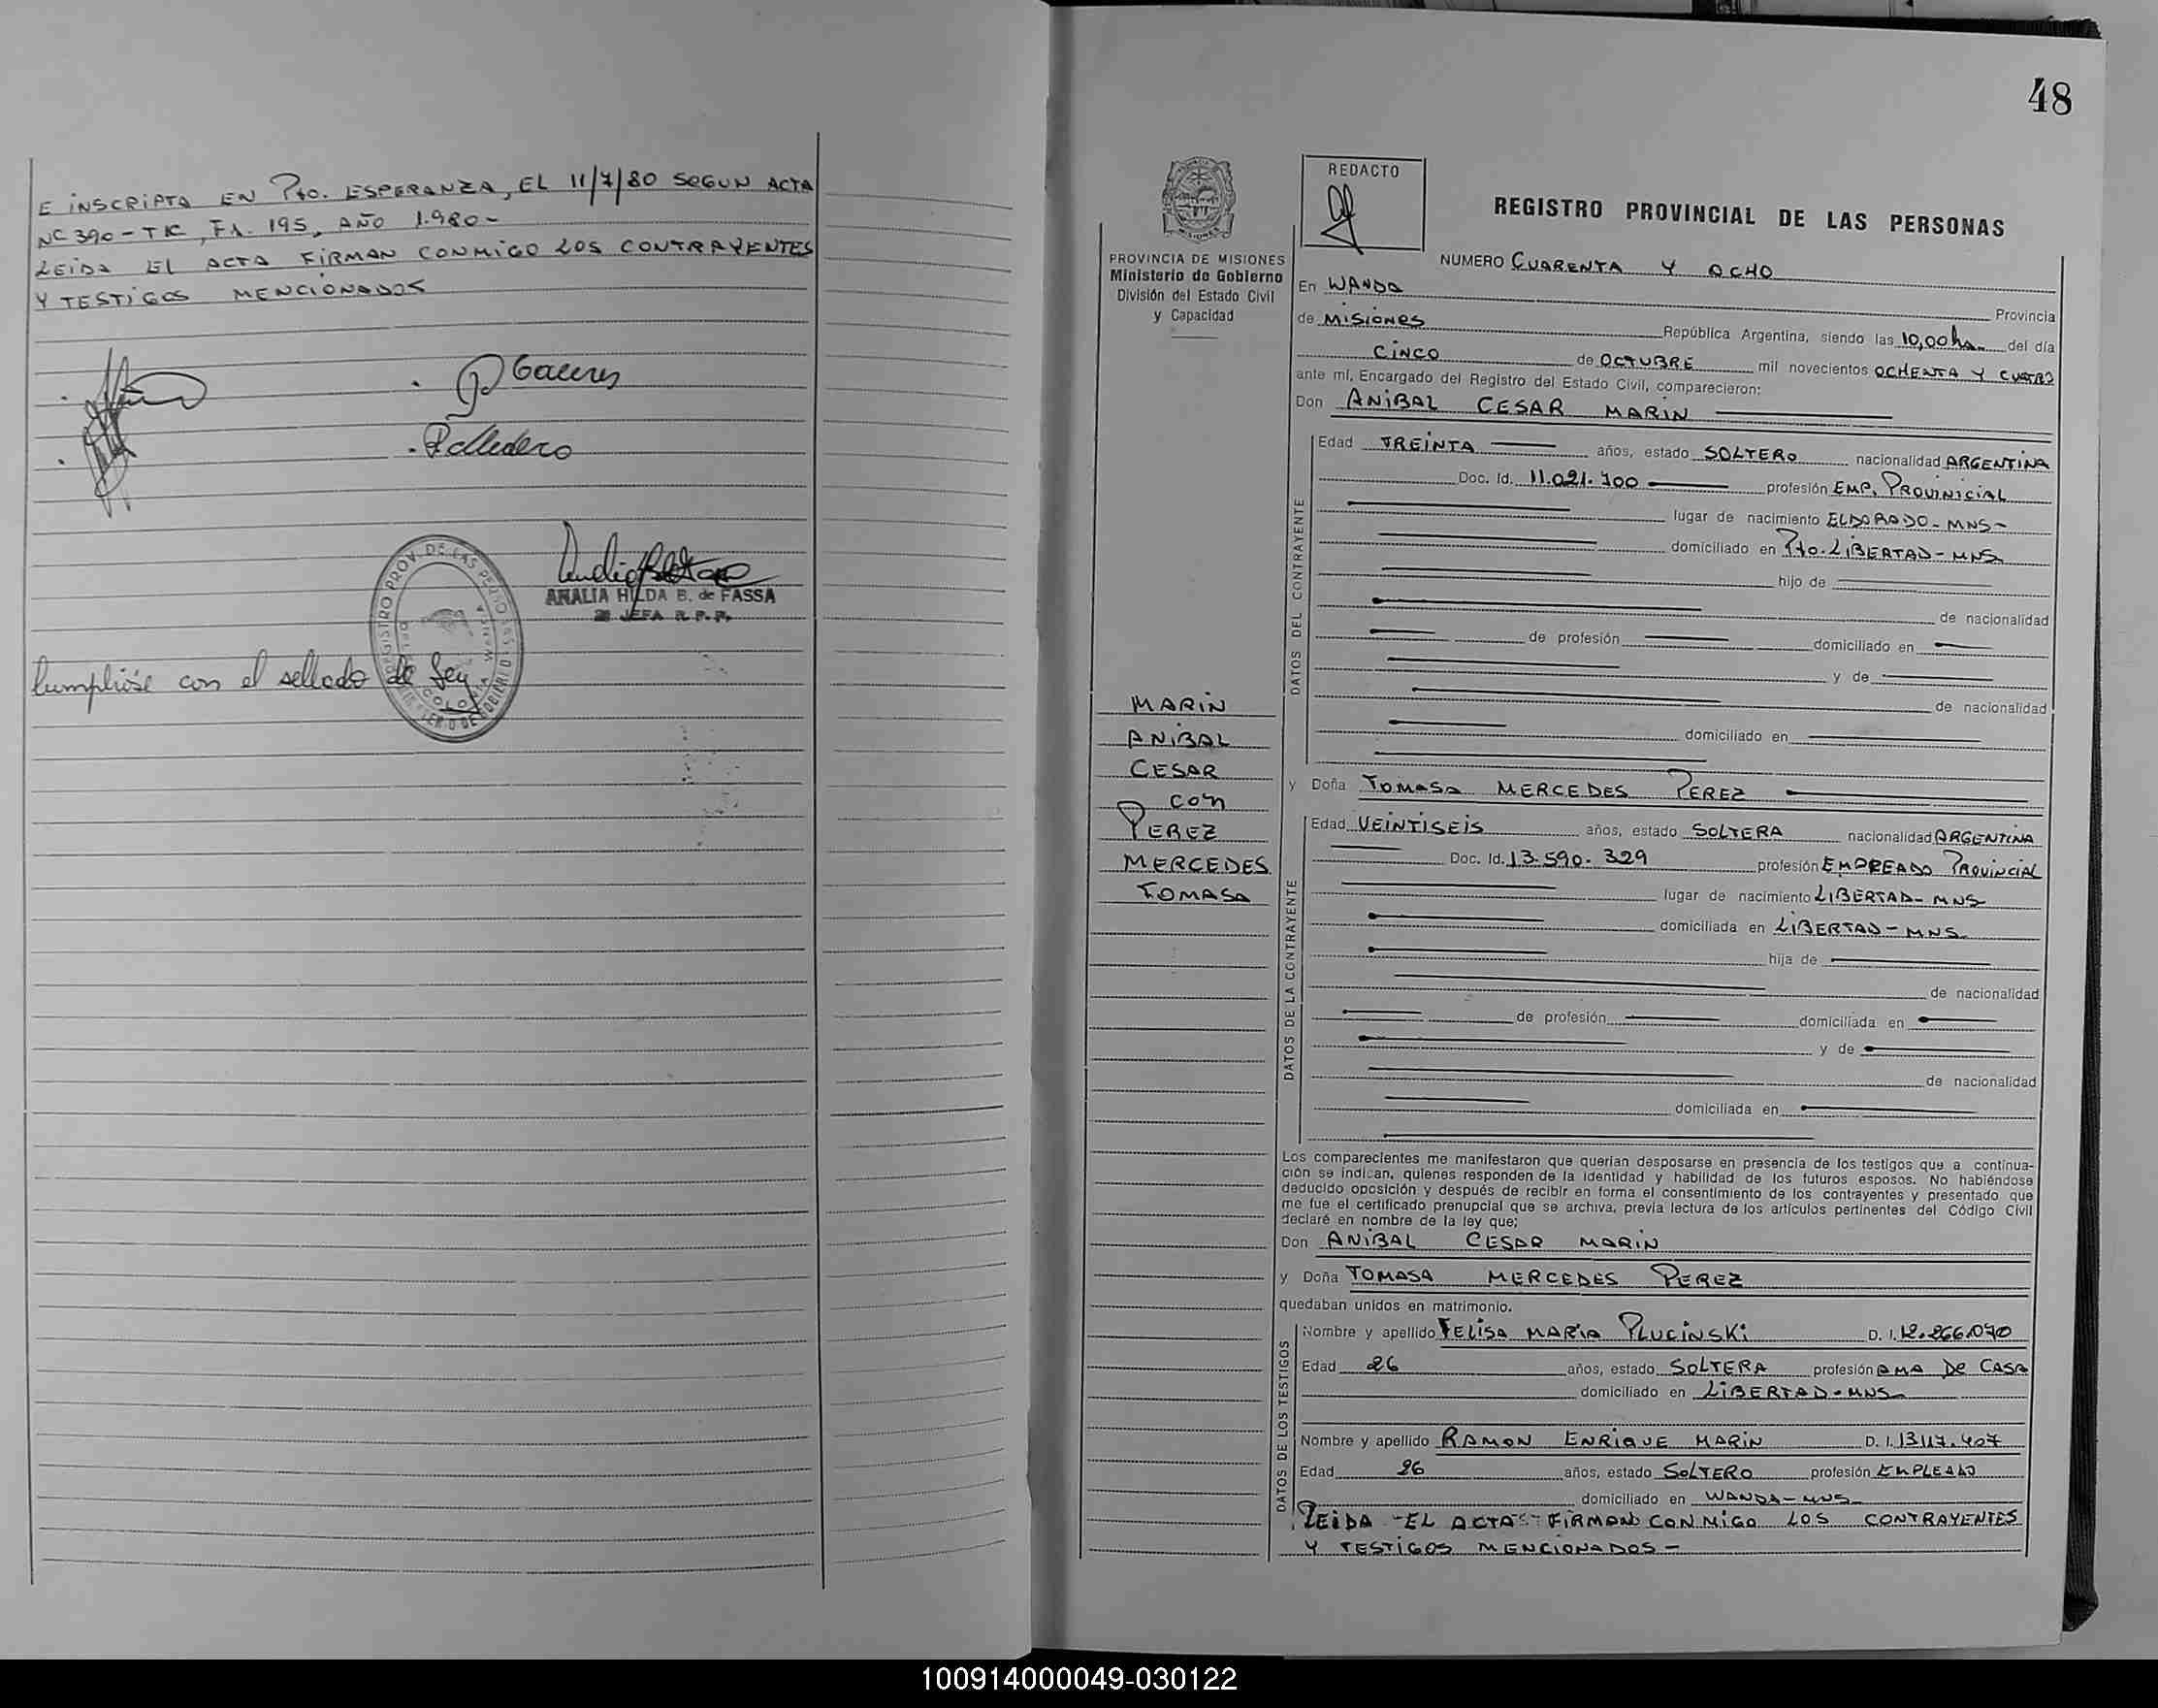 E INSCRIPTA EN Pto. ESPERANZA, EL 11/7/80 SEGUN ACTA
NC 390-TK, Fl. 195, AÑO 1.980-
LEIDA EL ACTA FIRMAN CONMIGO LOS CONTRAYENTES
Y TESTIGOS MENCIONADOS
ANALIA HILDA B. de FASSA
JEFA R. P. P.
Cumplióse con el sellado de ley
48
REDACTO
REGISTRO PROVINCIAL DE LAS PERSONAS
PROVINCIA DE MISIONES
Ministerio de Gobierno
División del Estado Civil
y Capacidad
NUMERO CUARENTA Y OCHO
En WANDA Provincia
de MISIONES República Argentina, siendo las 10,00 hs. del día
CINCO de OCTUBRE mil novecientos OCHENTA Y CUATRO
ante mí, Encargado del Registro del Estado Civil, comparecieron:
Don ANIBAL CESAR MARIN
DATOS DEL CONTRAYENTE
Edad TREINTA años, estado SOLTERO nacionalidad ARGENTINA
Doc. Id. 11.021.700 profesión EMP. PROVINICIAL
lugar de nacimiento ELDORADO-MNS-
domiciliado en Pto. LIBERTAD-MNS
hijo de
de nacionalidad
de profesión domiciliado en
y de
de nacionalidad
domiciliado en
MARIN
ANIBAL
CESAR
con
PEREZ
MERCEDES
TOMASA
y Doña TOMASA MERCEDES PEREZ
DATOS DE LA CONTRAYENTE
Edad VEINTISEIS años, estado SOLTERA nacionalidad ARGENTINA
Doc. Id. 13.590.329 profesión EMPREADO PROVINCIAL
lugar de nacimiento LIBERTAD-MNS
domiciliada en LIBERTAD-MNS
hija de
de nacionalidad
de profesión domiciliada en
y de
de nacionalidad
domiciliada en
Los comparecientes me manifestaron que querían desposarse en presencia de los testigos que a continua-
ción se indican, quienes responden de la identidad y habilidad de los futuros esposos. No habiéndose
deducido oposición y después de recibir en forma el consentimiento de los contrayentes y presentado que
me fue el certificado prenupcial que se archiva, previa lectura de los artículos pertinentes del Código Civil
declaré en nombre de la ley que;
Don ANIBAL CESAR MARIN
y Doña TOMASA MERCEDES PEREZ
quedaban unidos en matrimonio.
DATOS DE LOS TESTIGOS
Nombre y apellido FELISA MARIA PLUCINSKI D. I. 12.266.070
Edad 26 años, estado SOLTERA profesión AMA DE CASA
domiciliado en LIBERTAD-MNS
Nombre y apellido RAMON ENRIQUE MARIN D. I. 13117.407
Edad 26 años, estado SOLTERO profesión EMPLEADO
domiciliado en WANDA-MNS
LEIDA EL ACTA FIRMAN CONMIGO LOS CONTRAYENTES
Y TESTIGOS MENCIONADOS-
100914000049-030122